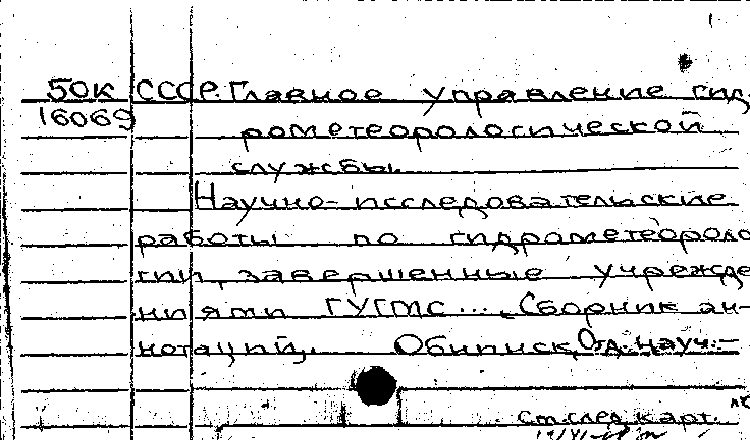 50К СССР. Главное управление гид-
16069 рометеорологической
службы.
Научно-исследовательские
работы по гидрометеороло
гии, завершенные учрежде
ниями ГУГМС... Сборник ан-
нотаций. Обнинск, Отд. науч.-
См. след. карт.